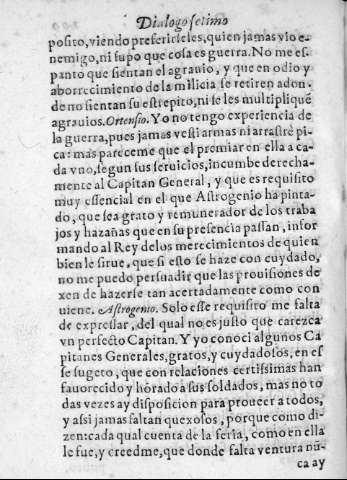 Dialogo setimo
posito, viendo preferirseles, quien jamas vio e-
nemigo, ni supo que cosa es guerra. No me es-
panto que sientan el agrauio, y que en odio y
aborrecimiento de la milicia se retiren adon-
de no sientan su estrepito, ni se les multipliquē
agrauios. Ortensio. Yo no tengo experiencia de
la guerra, pues jamas vesti armas ni arrastrè pi-
ca: mas pareceme que el premiar en ella a ca-
da vno, segun sus seruicios, incumbe derecha-
mente al Capitan General, y que es requisito
muy essencial en el que Astrogenio ha pinta-
do, que sea grato y remunerador de los traba
jos y hazañas que en su presencia passan, infor
mando al Rey de los merecimientos de quien
bien le sirue, que si esto se haze con cuydado,
no me puedo persuadir que las prouisiones de
xen de hazerse tan acertadamente como con
uiene. Astrogenio. Solo esse requisito me falta
de expressar, del qual no es justo que carezca
vn perfecto Capitan. Y yo conoci algunos Ca
pitanes Generales, gratos, y cuydadosos, en es
se sugeto, que con relaciones certissimas han
fauorecido y hōrado à sus soldados, mas no to
das vezes ay disposicion para proueer a todos,
y assi jamas faltan quexosos, porque como di-
zen: cada qual cuenta de la feria, como en ella
le fue, y creedme, que donde falta ventura nū-
ca ay